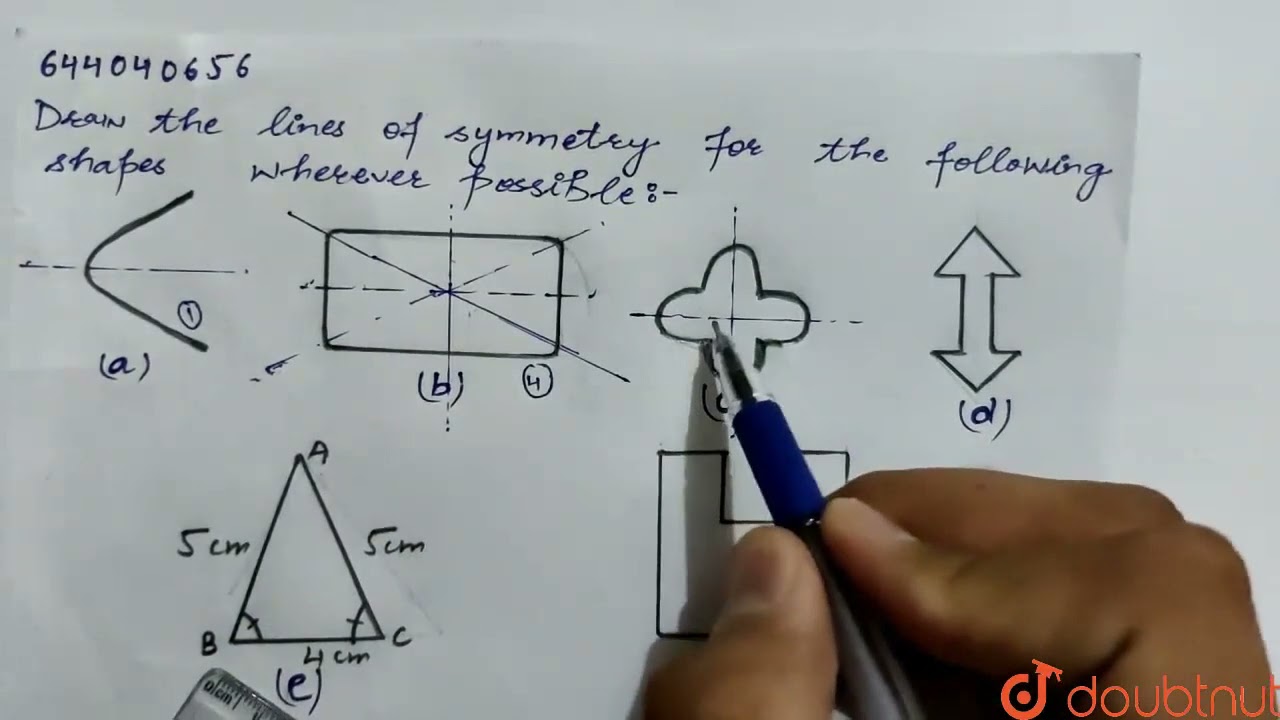 644040656
Draw the lines of symmetry for the following
shapes wherever possible:-
1
(a)
(b)
4
(d)
A
5cm
5cm
B
C
4cm
(e)
0cm
doubtnut